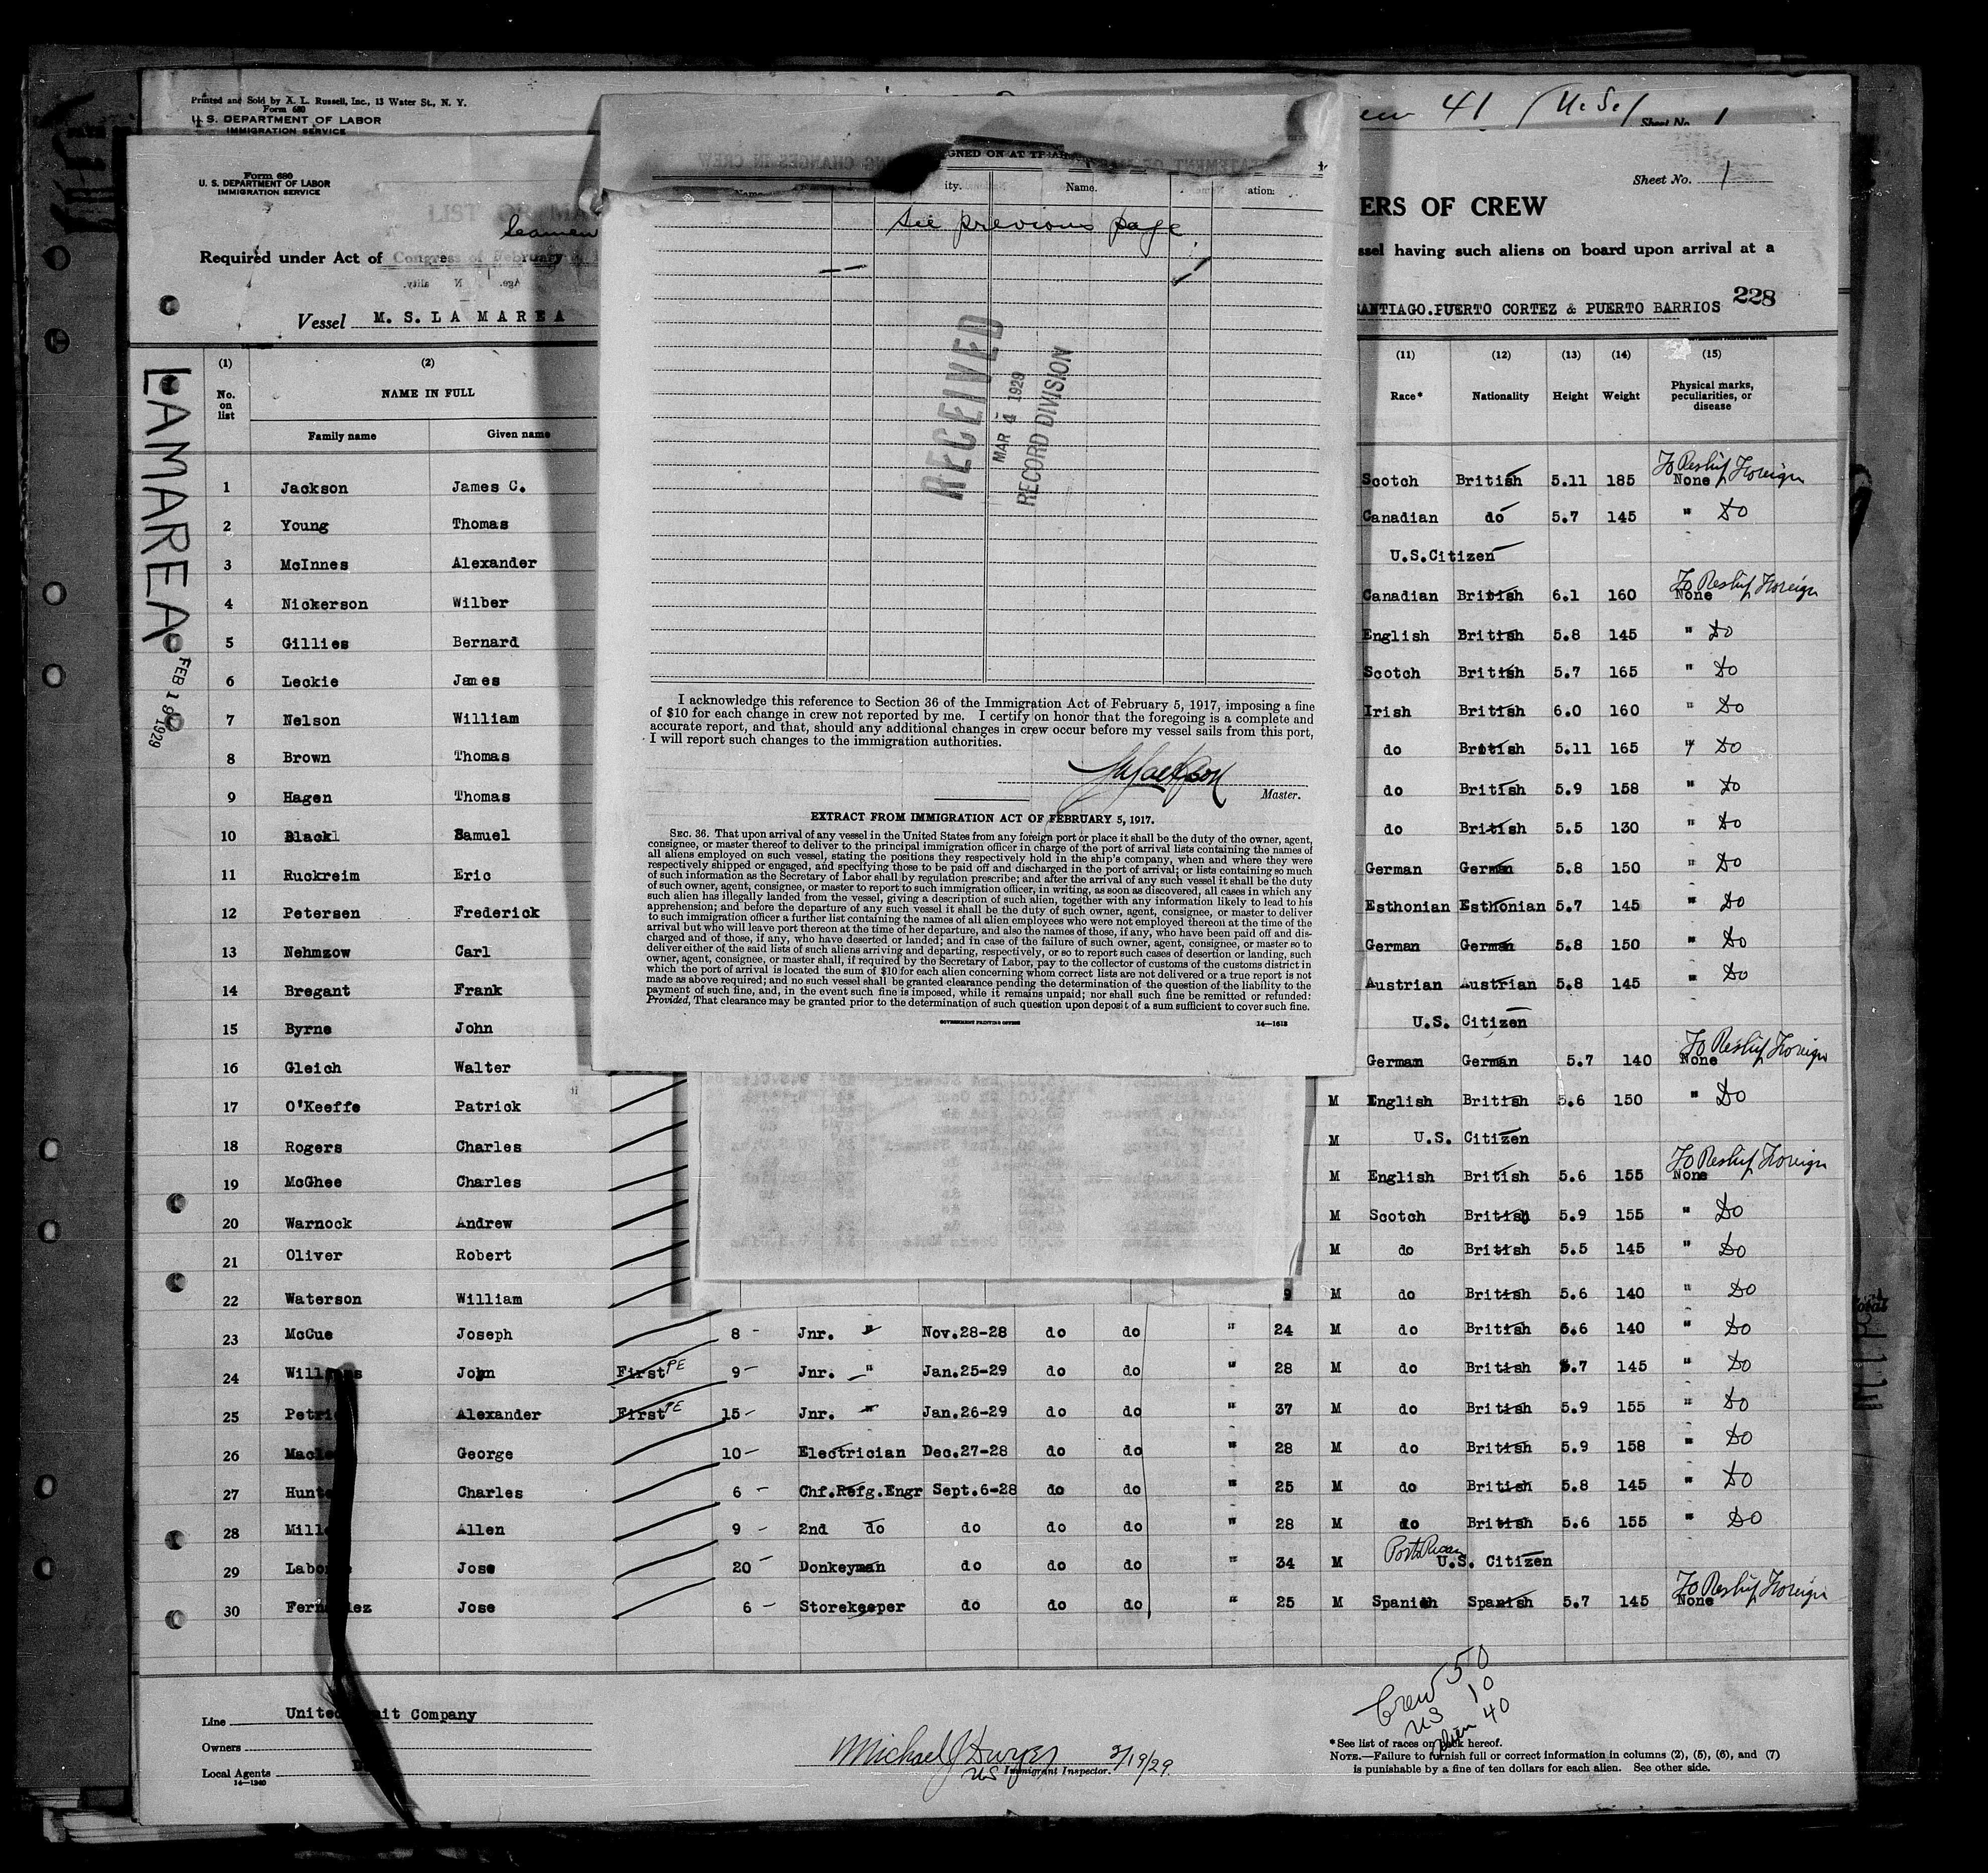 Printed and Sold by X. L. Russell, Inc., 13 Water St., N. Y.
Form 680
U. S. DEPARTMENT OF LABOR
IMMIGRATION SERVICE
41 (U.S.)
Sheet No. 1
Form 680
U. S. DEPARTMENT OF LABOR
IMMIGRATION SERVICE
Sheet No. 1
LIST OR MA
ERS OF CREW
Required under Act of Congress of February
ssel having such aliens on board upon arrival at a
Vessel M. S. LA MAREA
ANTIAGO.PUERTO CORTEZ & PUERTO BARRIOS 228
LAMAREA
FEB 19 1929
GNED ON AT
ity. Name. ation
see previous page
RECEIVED
MAR 4 1929
RECORD DIVISION
I acknowledge this reference to Section 36 of the Immigration Act of February 5, 1917, imposing a fine
of $10 for each change in crew not reported by me. I certify on honor that the foregoing is a complete and
accurate report, and that, should any additional changes in crew occur before my vessel sails from this port,
I will report such changes to the immigration authorities.
Master.
EXTRACT FROM IMMIGRATION ACT OF FEBRUARY 5, 1917.
SEC. 36. That upon arrival of any vessel in the United States from any foreign port or place it shall be the duty of the owner, agent,
consignee, or master thereof to deliver to the principal immigration officer in charge of the port of arrival lists containing the names of
all aliens employed on such vessel, stating the positions they respectively hold in the ship's company, when and where they were
respectively shipped or engaged, and specifying those to be paid off and discharged in the port of arrival; or lists containing so much
of such information as the Secretary of Labor shall by regulation prescribe; and after the arrival of any such vessel it shall be the duty
of such owner, agent, consignee, or master to report to such immigration officer, in writing, as soon as discovered, all cases in which any
such alien has illegally landed from the vessel, giving a description of such alien, together with any information likely to lead to his
apprehension; and before the departure of any such vessel it shall be the duty of such owner, agent, consignee, or master to deliver
to such immigration officer a further list containing the names of all alien employees who were not employed thereon at the time of the
arrival but who will leave port thereon at the time of her departure, and also the names of those, if any, who have been paid off and dis-
charged and of those, if any, who have deserted or landed; and in case of the failure of such owner, agent, consignee, or master so to
deliver either of the said lists of such aliens arriving and departing, respectively, or so to report such cases of desertion or landing, such
owner, agent, consignee, or master shall, if required by the Secretary of Labor, pay to the collector of customs of the customs district in
which the port of arrival is located the sum of $10 for each alien concerning whom correct lists are not delivered or a true report is not
made as above required; and no such vessel shall be granted clearance pending the determination of the question of the liability to the
payment of such fine, and, in the event such fine is imposed, while it remains unpaid; nor shall such fine be remitted or refunded:
Provided, That clearance may be granted prior to the determination of such question upon deposit of a sum sufficient to cover such fine.
GOVERNMENT PRINTING OFFICE 14—1613
(1) (2) (11) (12) (13) (14) (15)
No. on list NAME IN FULL Race* Nationality Height Weight Physical marks, peculiarities, or disease
Family name Given name
1 Jackson James C. Scotch British 5.11 185 None To Reship Foreign
2 Young Thomas Canadian do 5.7 145 " Do
3 McInnes Alexander U.S.Citizen
4 Nickerson Wilber Canadian British 6.1 160 None To Reship Foreign
5 Gillies Bernard English British 5.8 145 " Do
6 Leckie James Scotch British 5.7 165 " Do
7 Nelson William Irish British 6.0 160 " Do
8 Brown Thomas do British 5.11 165 " Do
9 Hagen Thomas do British 5.9 158 " Do
10 Black Samuel do British 5.5 130 " Do
11 Ruckreim Eric German German 5.8 150 " Do
12 Petersen Frederick Esthonian Esthonian 5.7 145 " Do
13 Nehmzow Carl German German 5.8 150 " Do
14 Bregant Frank Austrian Austrian 5.8 145 " Do
15 Byrne John U.S. Citizen
16 Gleich Walter German German 5.7 140 None To Reship Foreign
17 O'Keeffe Patrick M English British 5.6 150 " Do
18 Rogers Charles M U.S. Citizen
19 McGhee Charles M English British 5.6 155 None To Reship Foreign
20 Warnock Andrew M Scotch British 5.9 155 " Do
21 Oliver Robert M do British 5.5 145 " Do
22 Waterson William 9 M do British 5.6 140 " Do
23 McCue Joseph 8 - Jnr. " Nov.28-28 do do " 24 M do British 5.6 140 " Do
24 Will John First PE 9 - Jnr. " Jan.25-29 do do " 28 M do British 5.7 145 " Do
25 Petri Alexander First PE 15 - Jnr. " Jan.26-29 do do " 37 M do British 5.9 155 " Do
26 Macle George 10 - Electrician Dec.27-28 do do " 28 M do British 5.9 158 " Do
27 Hunte Charles 6 - Chf.Refg.Engr Sept.6-28 do do " 25 M do British 5.8 145 " Do
28 Mill Allen 9 - 2nd do do do do " 28 M do British 5.6 155 " Do
29 Labo Jose 20 - Donkeyman do do do " 34 M Porto Rican U.S. Citizen
30 Fern ez Jose 6 - Storekeeper do do do " 25 M Spanish Spanish 5.7 145 None To Reship Foreign
Crew 50
US 10
Alien 40
Line United it Company
Owners
Local Agents
14—1240
Michael J Dwyer 2/19/29
US Immigrant Inspector.
*See list of races on back hereof.
NOTE.—Failure to furnish full or correct information in columns (2), (5), (6), and (7)
is punishable by a fine of ten dollars for each alien. See other side.